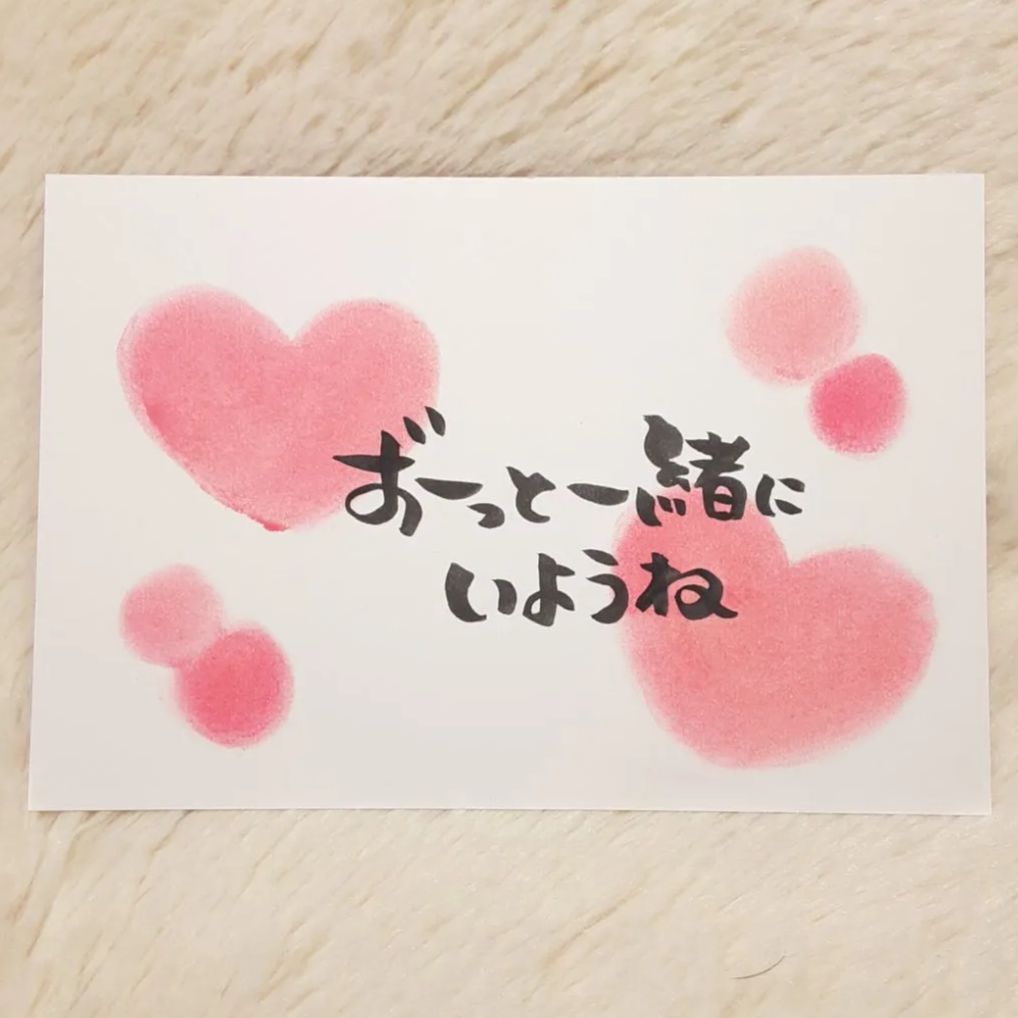 ずーっと一緒に
いようね